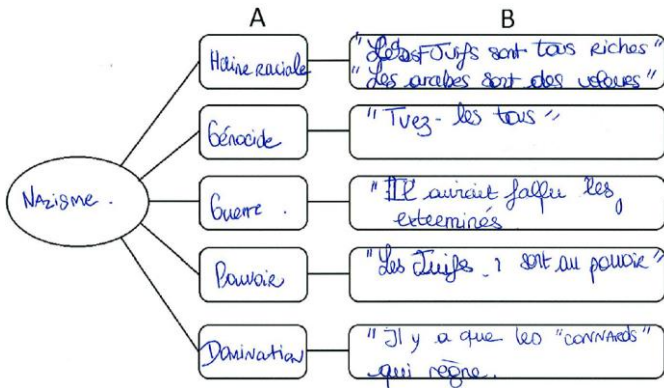 A B
Haine raciale
"Les Juifs sont tous riches"
"Les arabes sont des voleurs"
Génocide
"Tuez-les tous"
Nazisme.
Guerre.
"Il aurait fallu les
exterminés
Pouvoir
"Les Juifs sont au pouvoir"
Domination
"Il y a que les "CONNARDS"
qui règne.